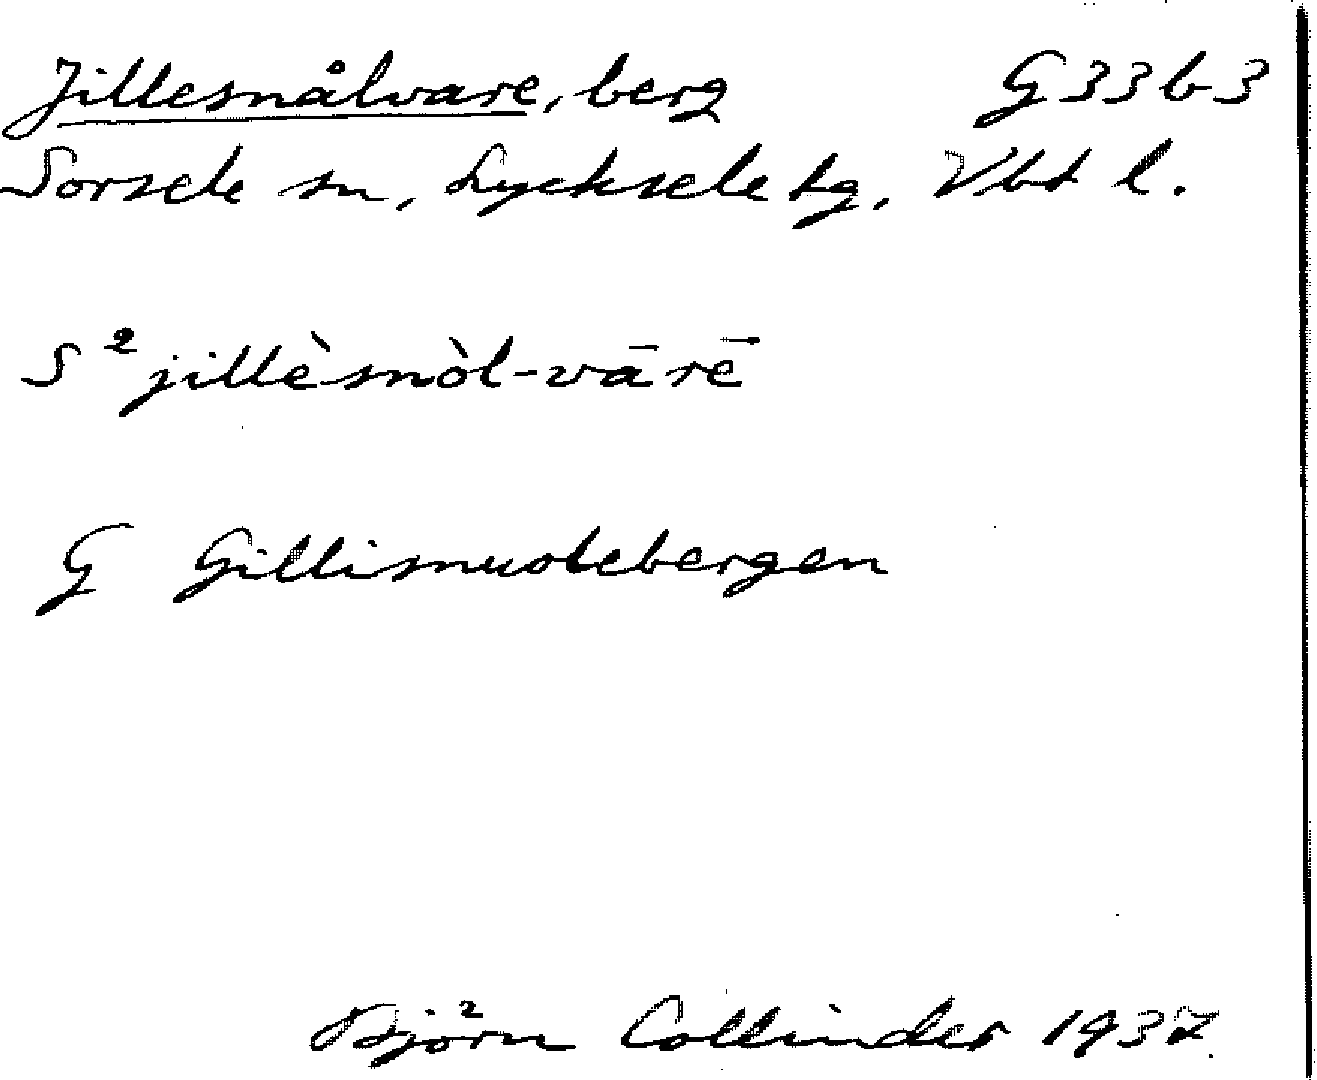 Jillesnålvare, berg G33b3
Sorsele sn, Lycksele tg, Vbt l.
S ² jillèsnòl-vārē
G Gillisnuolebergen
Björn Collinder 1937.